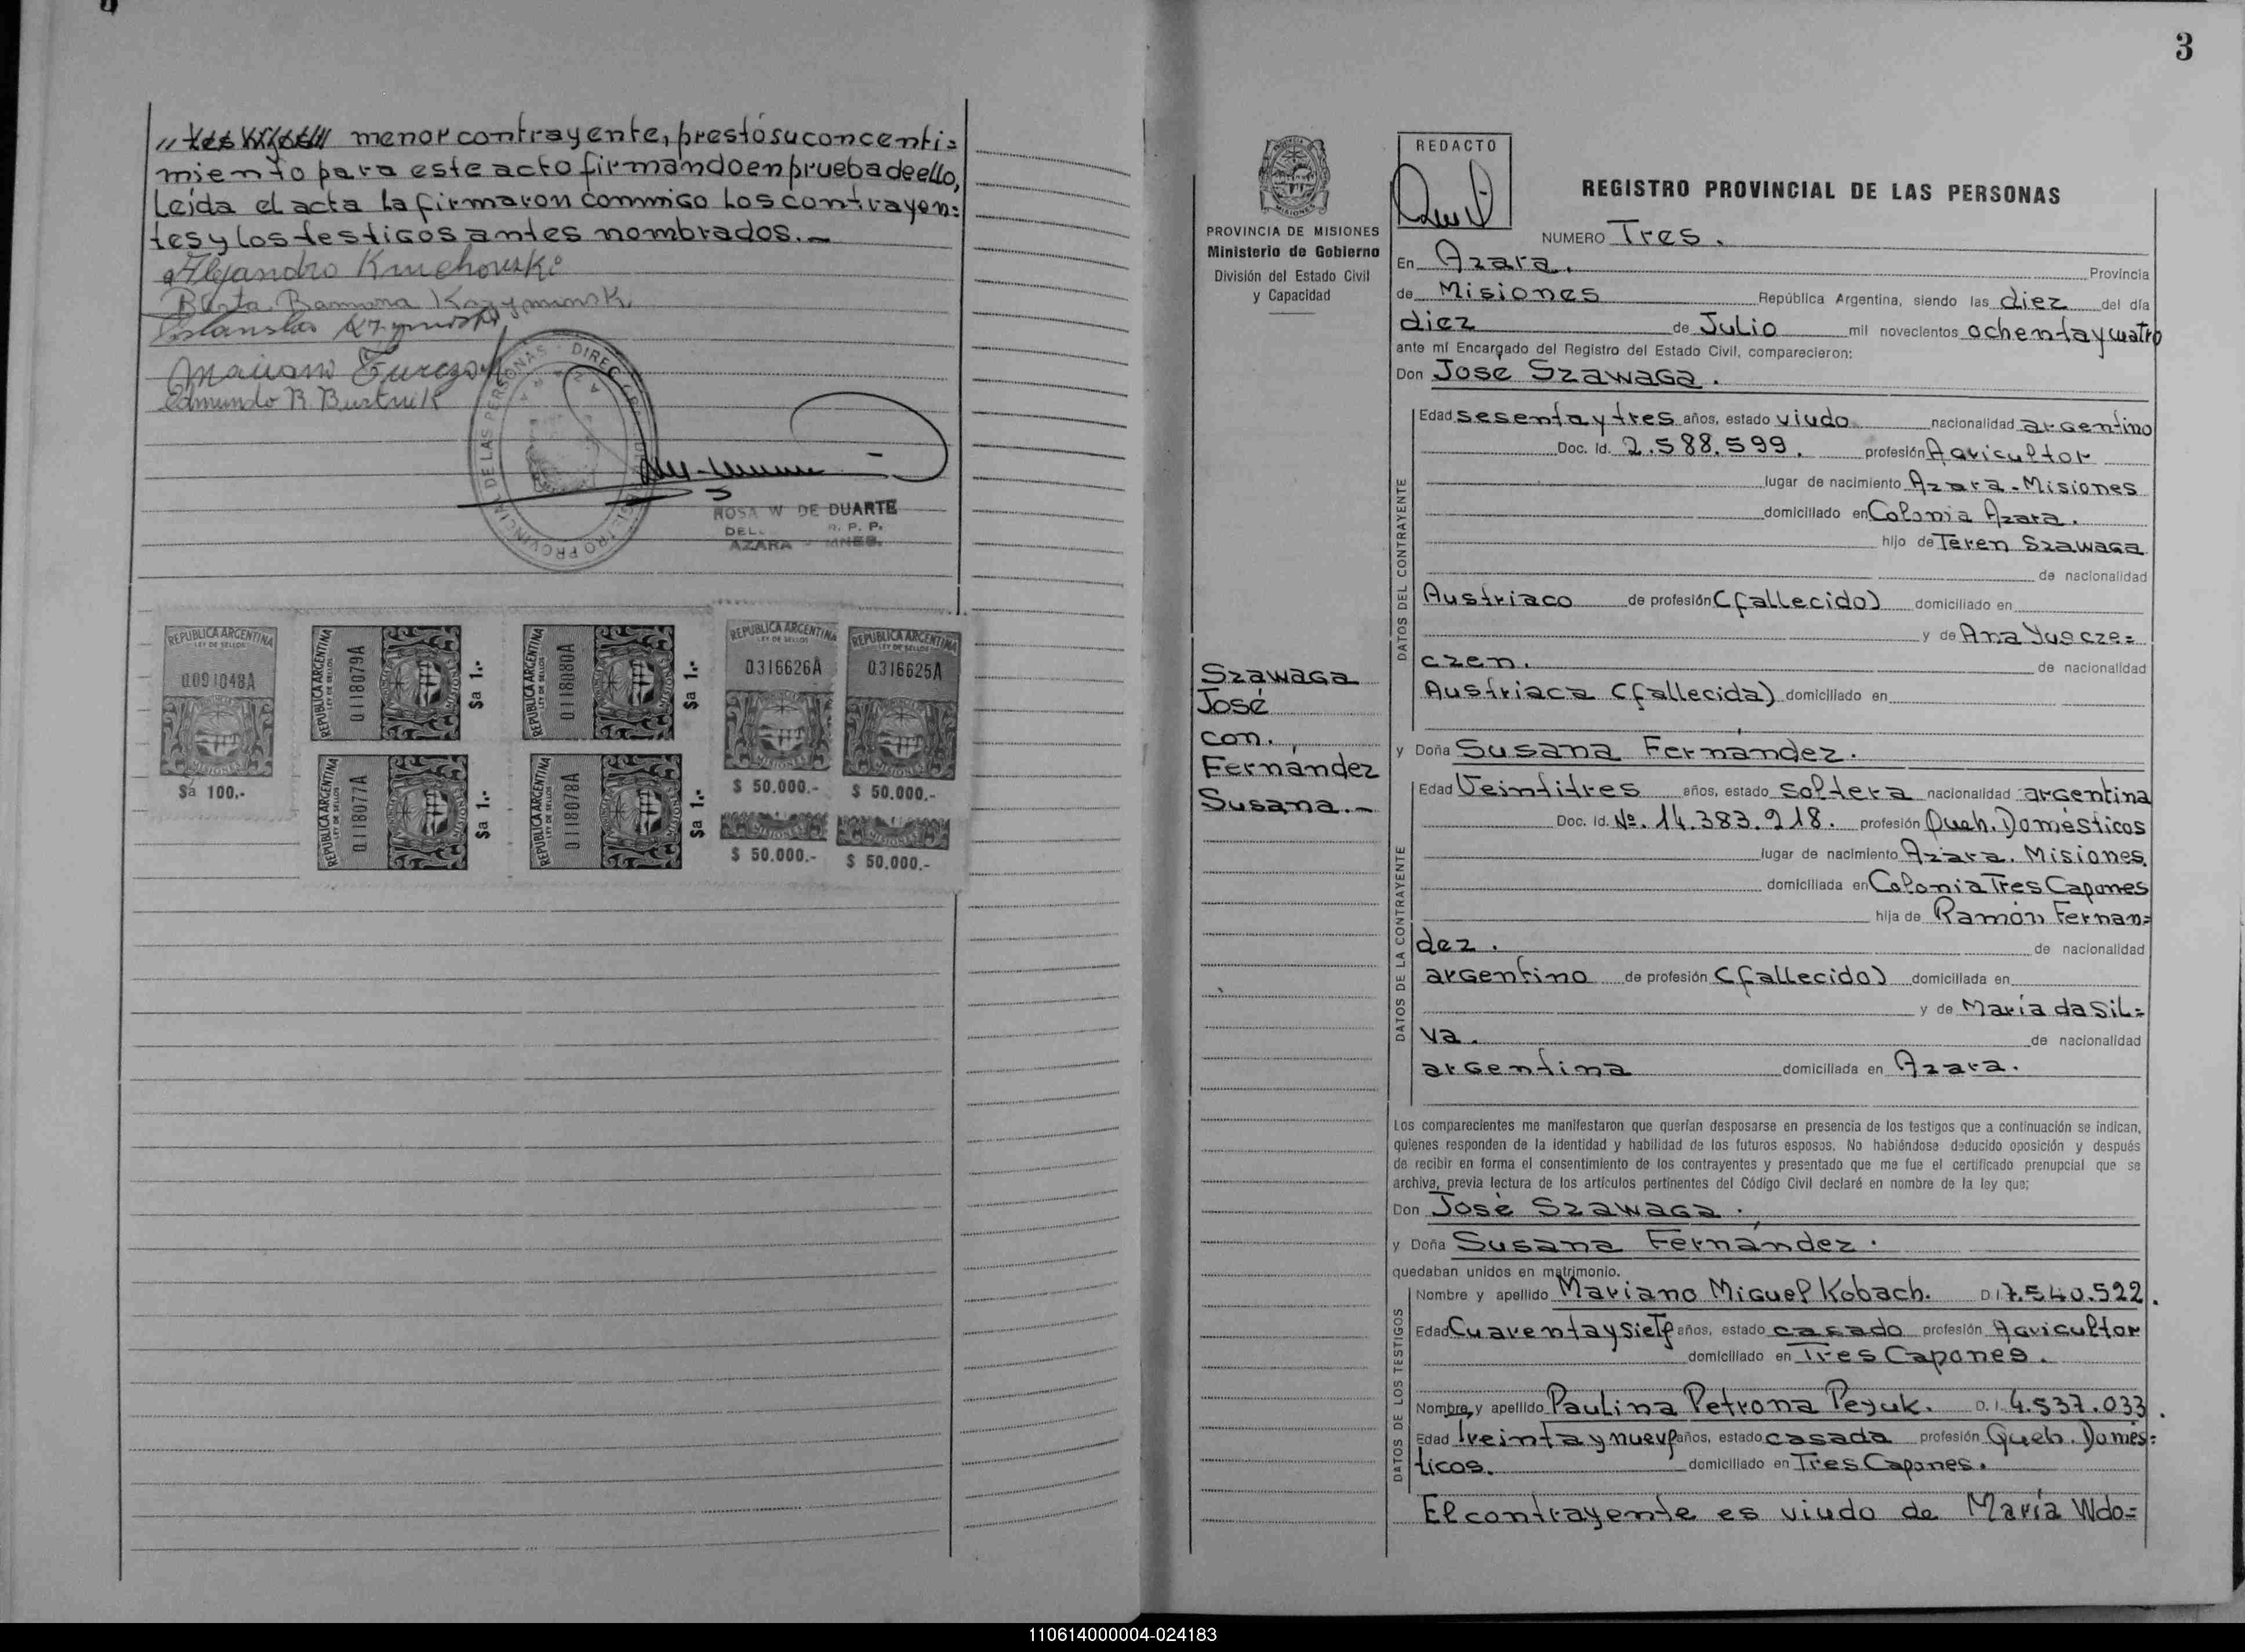 menor contrayente, prestó su concenti=
miento para este acto firmando en prueba de ello,
Leída el acta la firmaron conmigo Los contrayen=
tes y los testigos antes nombrados.-
Alejandro
Berta Ramona
Mariano
Edmundo R.
ROSA W DE DUARTE
DEL. R. P. P.
AZARA - MNES.
REPUBLICA ARGENTINA
LEY DE SELLOS
0091048A
MISIONES
$a 100.-
REPUBLICA ARGENTINA
LEY DE SELLOS
0118079A
$a 1.-
REPUBLICA ARGENTINA
LEY DE SELLOS
0118080A
$a 1.-
REPUBLICA ARGENTINA
LEY DE SELLOS
0316626A
MISIONES
$ 50.000.-
REPUBLICA ARGENTINA
LEY DE SELLOS
0316625A
MISIONES
$ 50.000.-
REPUBLICA ARGENTINA
LEY DE SELLOS
0118077A
$a 1.-
REPUBLICA ARGENTINA
LEY DE SELLOS
0118078A
$a 1.-
MISIONES
$ 50.000.-
MISIONES
$ 50.000.-
3
PROVINCIA DE MISIONES
Ministerio de Gobierno
División del Estado Civil
y Capacidad
Szawaga
José
con.
Fernández
Susana.-
REDACTO
REGISTRO PROVINCIAL DE LAS PERSONAS
NUMERO Tres.
En Azara. Provincia
de Misiones República Argentina, siendo las diez del día
diez de Julio mil novecientos ochenta y cuatro
ante mí Encargado del Registro del Estado Civil, comparecieron:
Don José Szawaga.
DATOS DEL CONTRAYENTE
Edad sesenta y tres años, estado viudo nacionalidad argentino
Doc. Id. 2.588.599. profesión Agricultor
lugar de nacimiento Azara - Misiones
domiciliado en Colonia Azara.
hijo de Teren Szawaga
de nacionalidad
Austriaco de profesión (fallecido) domiciliado en
y de Ana Yuscze=
czen. de nacionalidad
Austriaca (fallecida) domiciliado en
y Doña Susana Fernández.
DATOS DE LA CONTRAYENTE
Edad Veintitres años, estado soltera nacionalidad argentina
Doc. Id. Nº. 14.383.918. profesión Queh. Domésticos
lugar de nacimiento Azara. Misiones.
domiciliada en Colonia Tres Capones
hija de Ramón Fernan=
dez. de nacionalidad
argentino de profesión (fallecido) domiciliada en
y de María da Sil=
va. de nacionalidad
argentina domiciliada en Azara.
Los comparecientes me manifestaron que querían desposarse en presencia de los testigos que a continuación se indican,
quienes responden de la identidad y habilidad de los futuros esposos. No habiéndose deducido oposición y después
de recibir en forma el consentimiento de los contrayentes y presentado que me fue el certificado prenupcial que se
archiva, previa lectura de los artículos pertinentes del Código Civil declaré en nombre de la ley que:
Don José Szawaga.
y Doña Susana Fernández.
quedaban unidos en matrimonio.
DATOS DE LOS TESTIGOS
Nombre y apellido Mariano Miguel Kobach. D I 7.540.522.
Edad Cuarenta y siete años, estado casado profesión Agricultor
domiciliado en Tres Capones.
Nombre y apellido Paulina Petrona Peyuk. D. I. 4.537.033.
Edad Treinta y nueve años, estado casada profesión Queh. Domés=
ticos. domiciliado en Tres Capones.
El contrayente es viudo de María Wdo=
110614000004-024183